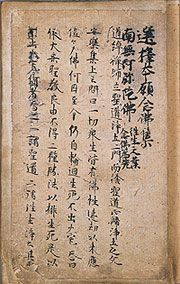 選擇本願念佛集
南無阿弥陀佛 往生之業 念佛爲先
道綽禪師立聖道淨土二門而捨聖道正歸淨土之文
安樂集上云問曰一切衆生皆有佛性遠劫以來應
値多佛何因至今仍自輪迴生死不出火宅答曰
依大乘聖教良由不得二種勝法以排生死是以
不出火宅何者爲二一謂聖道二謂往生淨土其聖